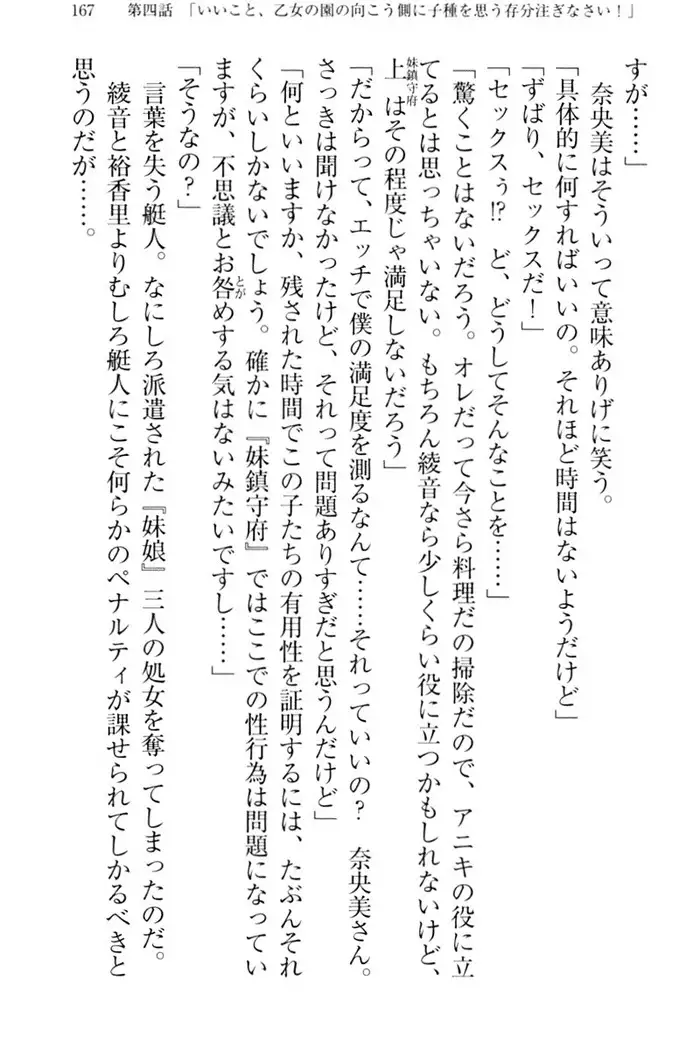 167　第四話　「いいこと、乙女の園の向こう側に子種を思う存分注ぎなさい！」
すが……」
　奈央美はそういって意味ありげに笑う。
「具体的に何すればいいの。それほど時間はないようだけど」
「ずばり、セックスだ！」
「セックスぅ!?　ど、どうしてそんなことを……」
「驚くことはないだろう。オレだって今さら料理だの掃除だので、アニキの役に立
てるとは思っちゃいない。もちろん綾音なら少しくらい役に立つかもしれないけど、
上（妹鎮守府）はその程度じゃ満足しないだろう」
「だからって、エッチで僕の満足度を測るなんて……それっていいの？　奈央美さん。
さっきは聞けなかったけど、それって問題ありすぎだと思うんだけど」
「何といいますか、残された時間でこの子たちの有用性を証明するには、たぶんそれ
くらいしかないでしょう。確かに『妹鎮守府』ではここでの性行為は問題になってい
ますが、不思議とお咎（とが）めする気はないみたいですし……」
「そうなの？」
　言葉を失う艇人。なにしろ派遣された『妹娘』三人の処女を奪ってしまったのだ。
　綾音と裕香里よりむしろ艇人にこそ何らかのペナルティが課せられてしかるべきと
思うのだが……。